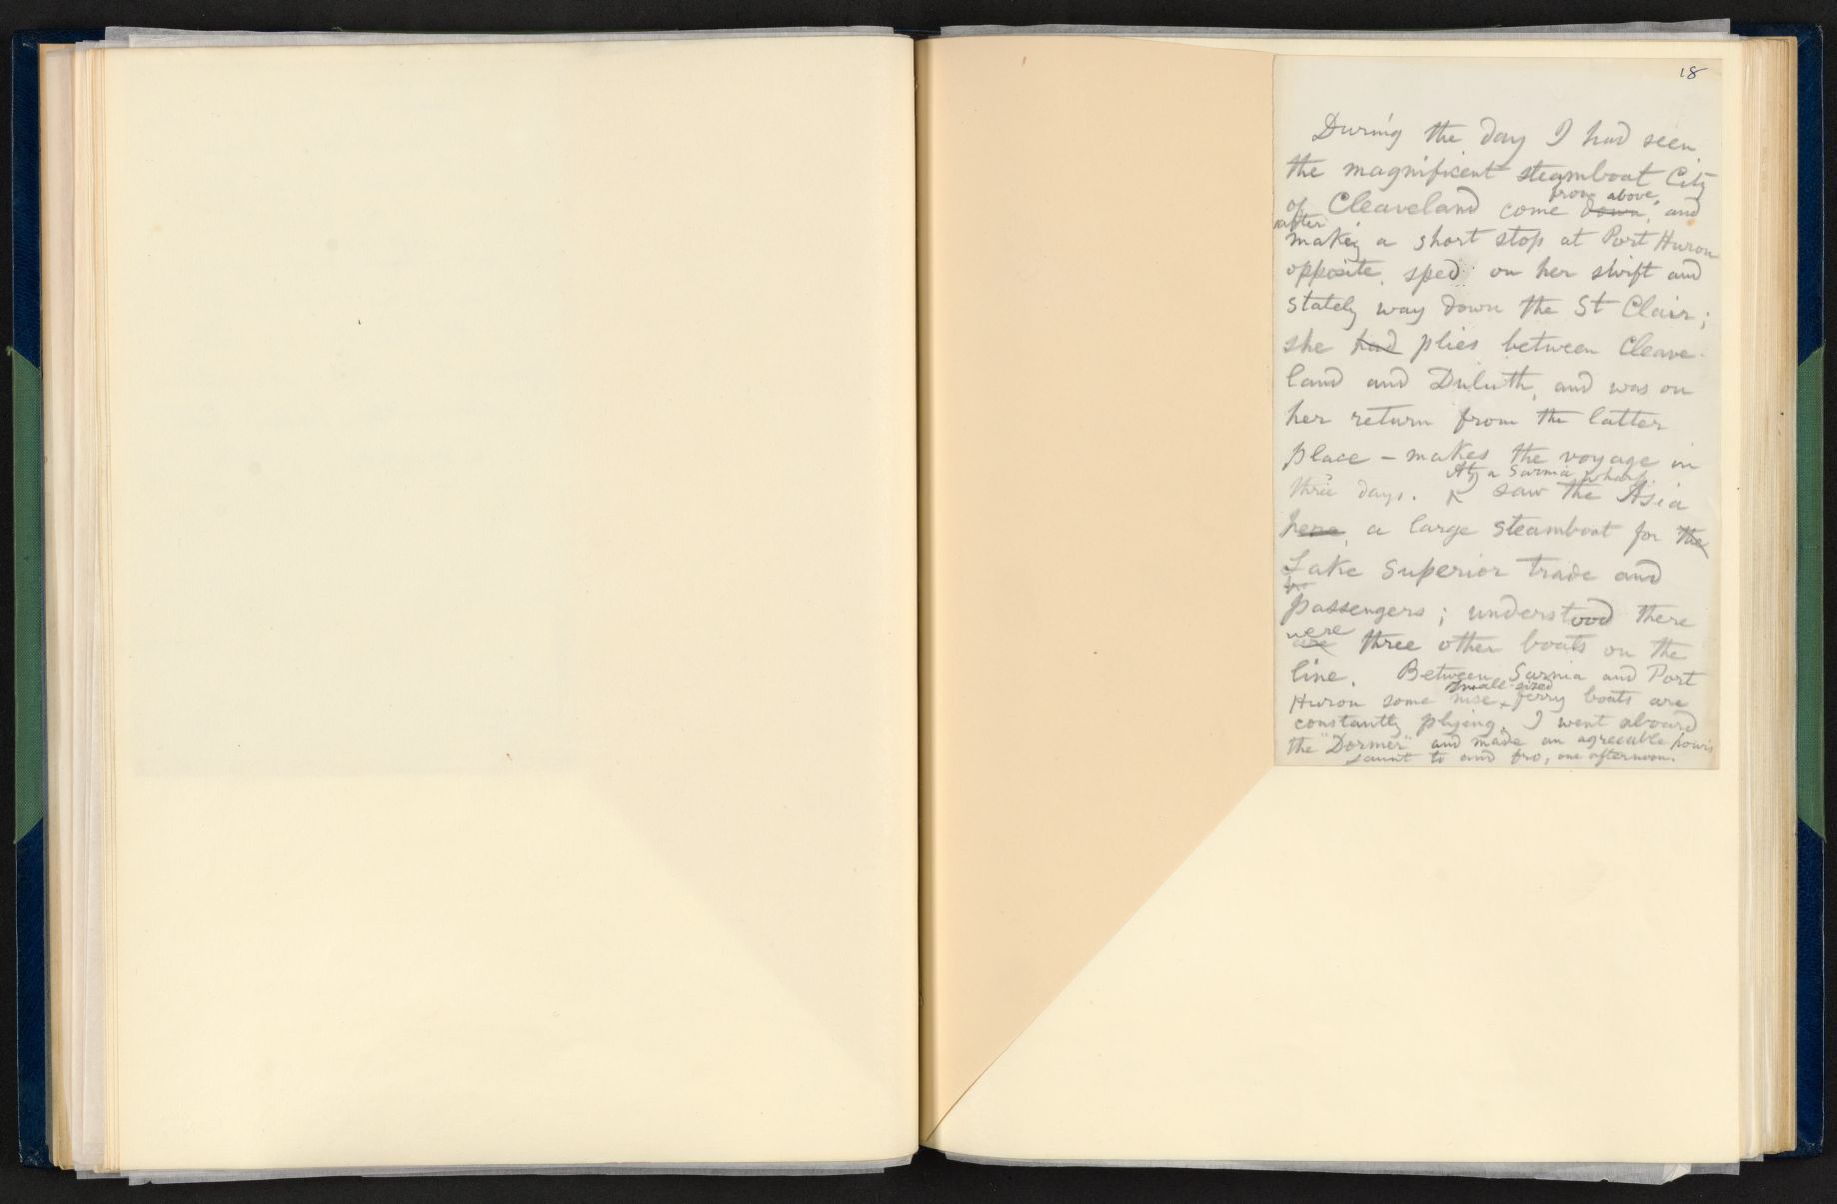 18
During the day I had seen
the magnificent steamboat City
from above,
of Cleaveland come down, and
after
making a short stop at Port Huron
opposite, sped on her swift and
stately way down the St Clair;
she had plies between Cleave-
land and Duluth, and was on
her return from the latter
place – makes the voyage in
At a Sarnia wharf
three days. saw the Asia
here, a large steamboat for the
Lake Superior trade and
passengers; understood there
were
are three other boats on the
line. Between Sarnia and Port
small-sized
Huron some nice ferry boats are
constantly plying. I went aboard
the "Dormer" and made an agreeable hour's
jaunt to and fro, one afternoon.